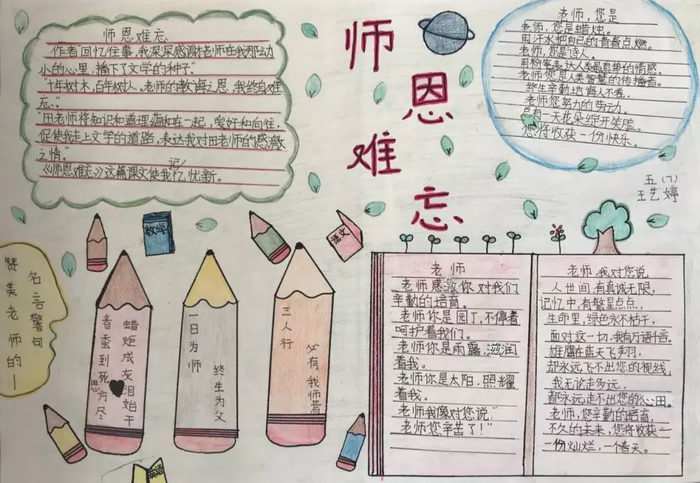 师恩难忘
师恩难忘
"作者回忆往事,我深深感谢老师在我那幼
小的心里,播下了文学的种子。"
"十年树木,百年树人,老师的教诲之恩,我终身难
忘。"
"田老师将知识和道理融和在一起,爱好和向往,
促使我走上文学的道路,表达我对田老师的感激
之情。"
《师恩难忘》这篇课文使我记忆忧新。
老师,您是
老师,您是蜡烛。
用汗水把自己的青春点燃。
老师,您是诗人。
老师您是人类智慧的传播者。
终生辛勤培诲人不倦。
老师您努力的劳动,
有一天花朵绽开笑脸。
您将收获一份快乐。
五(7)
王艺婷
数学
语文
赞美老师的——
名言警句
春蚕到死丝方尽
蜡炬成灰泪始干
一日为师
终生为父
三人行
必有我师焉
老师
老师感谢你,对我们
辛勤的培育。
老师你是园丁,不停着
呵护着我们。
老师你是雨露,滋润
着我。
老师你是太阳,照耀
着我。
老师我像对您说"
老师您辛苦了!"
老师,我对您说
人世间,有真诚无限,
记忆中,有繁星点点,
生命里,绿色永不枯干,
面对这一切,我有万语千言,
雄鹰在蓝天飞翔,
却永远飞不出您的视线,
我无论走多远,
却永远走不出您的心田。
老师,您辛勤的培育,
不久的未来,您将收获一
一份灿烂,一个春天。